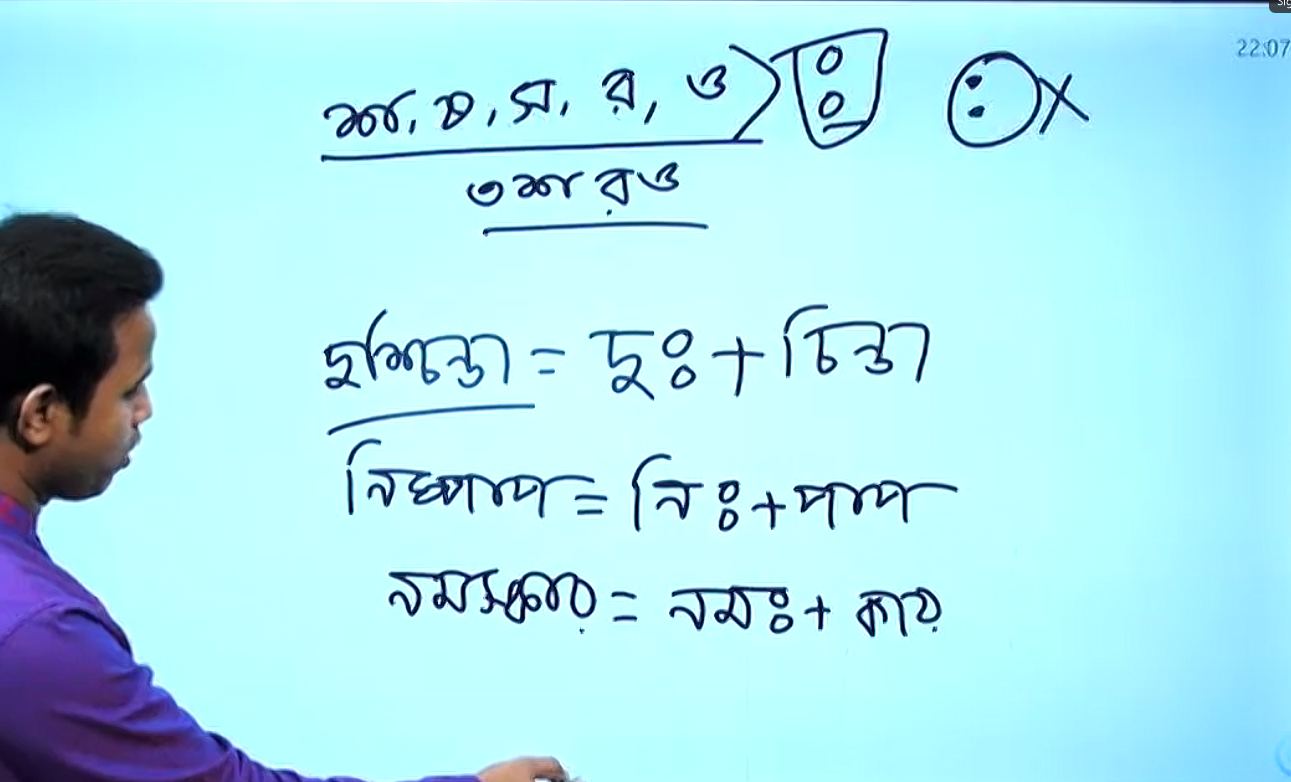 22:07
শ, ষ, স, র, ও > ঃ : X
৩ শ র ও
দুশ্চিন্তা = দুঃ + চিন্তা
নিষ্পাপ = নিঃ + পাপ
নমস্কার = নমঃ + কার